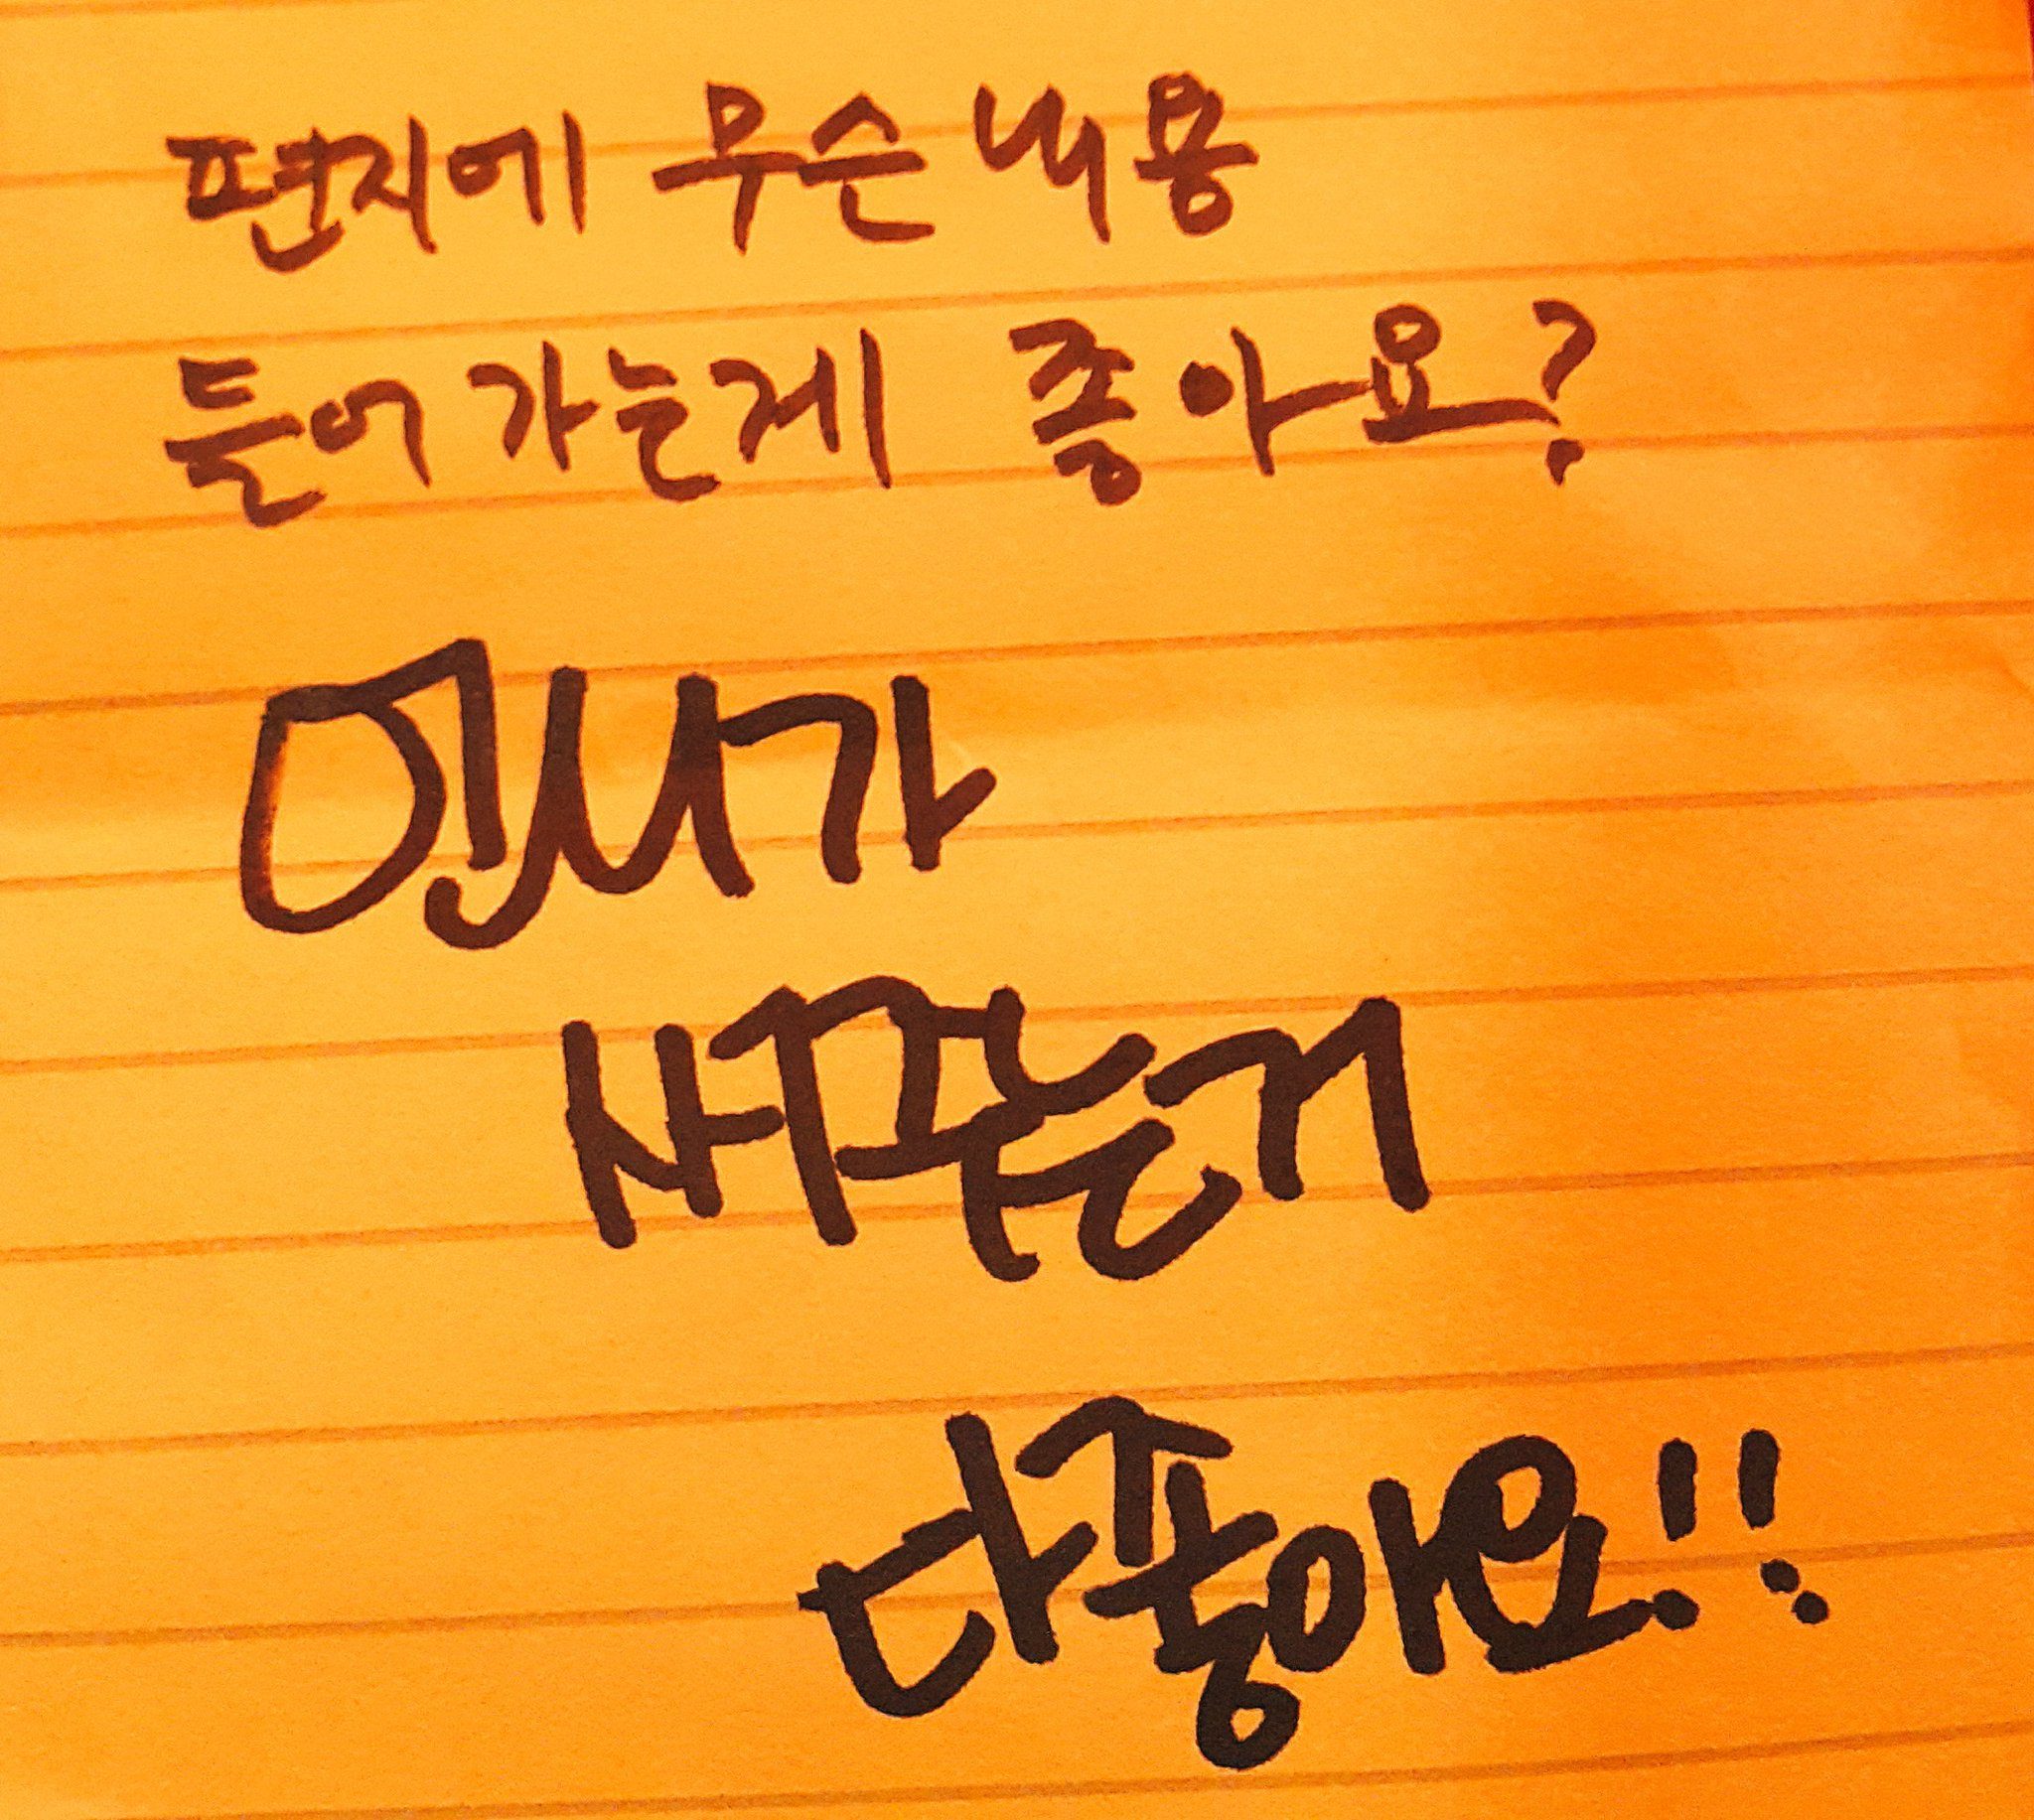 편지에 무슨 내용
들어가는게 좋아요?
언니가
써주는거
다 좋아요!!